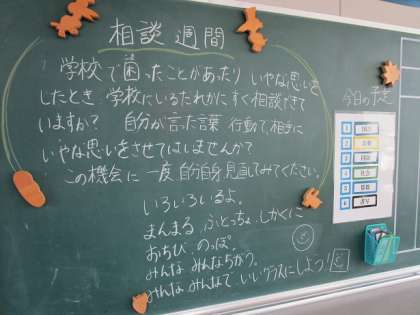 相談週間
学校で困ったことがあたり いやな思いを
したとき、学校にいるだれかにすぐ相談できて
いますか? 自分が言た言葉、行動で、相手に
いやな思いをさせてはいませんか?
この機会に一度、自分自身見直してみてください。
いろいろいるよ。
まんまる ふとっちょ しかくに
おちび、のっぽ。
みんな みんなちがう。
みんな みんなで いいクラスにしよう!
今日の予定
1
2
3
4
5
6